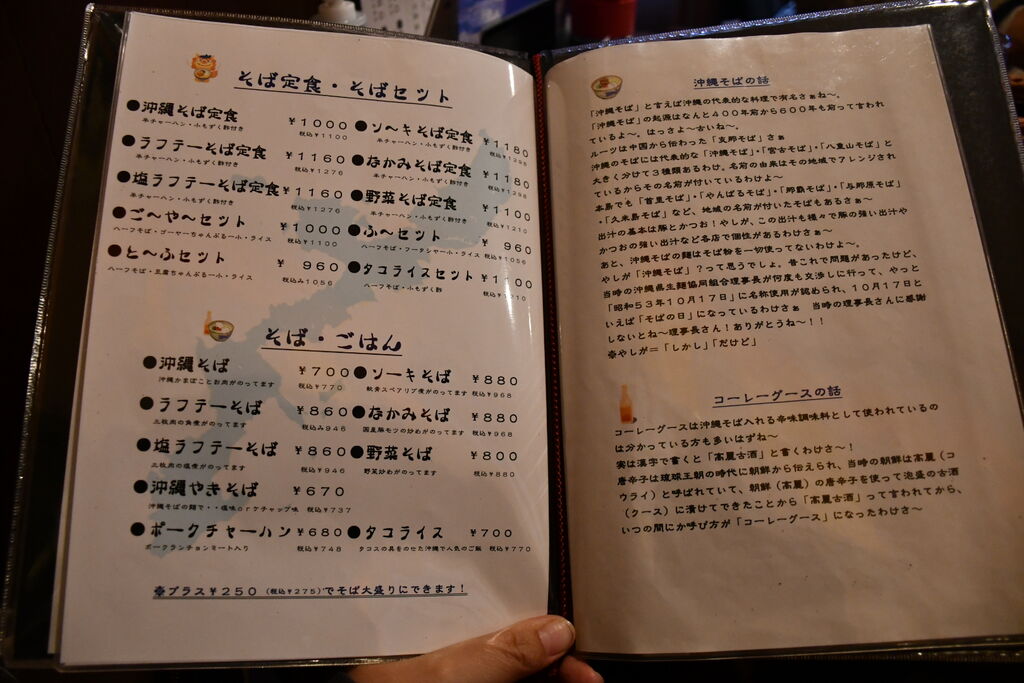 そば定食・そばセット
●沖縄そば定食 ¥1000
半チャーハン・小もずく酢付き 税込¥1100
●ラフテーそば定食 ¥1160
半チャーハン・小もずく酢付き 税込¥1276
●塩ラフテーそば定食 ¥1160
半チャーハン・小もずく酢付き 税込¥1276
●ご〜や〜セット ¥1000
ハーフそば・ゴーヤーちゃんぷるー小・ライス 税込¥1100
●と〜ふセット ¥960
ハーフそば・豆腐ちゃんぷるー小・ライス 税込み1056
●ソ〜キそば定食 ¥1180
半チャーハン・小もずく酢付き 税込¥1298
●なかみそば定食 ¥1180
半チャーハン・小もずく酢付き 税込¥1298
●野菜そば定食 ¥1100
半チャーハン・小もずく酢付き 税込¥1210
●ふ〜セット ¥960
ハーフそば・フーチャンプルー小・ライス 税込¥1056
●タコライスセット ¥1100
ハーフそば・小もずく酢 税込¥1210
そば・ごはん
●沖縄そば ¥700
沖縄かまぼことお肉がのってます 税込¥770
●ラフテーそば ¥860
三枚肉の角煮がのってます 税込み946
●塩ラフテーそば ¥860
三枚肉の塩煮がのってます 税込¥946
●沖縄やきそば ¥670
沖縄そばの麺で・・塩味orケチャップ味 税込¥737
●ポークチャーハン ¥680
ポークランチョンミート入り 税込¥748
●ソーキそば ¥880
軟骨スペアリブ煮がのってます 税込¥968
●なかみそば ¥880
国産豚モツの炒めがのってます 税込¥968
●野菜そば ¥800
野菜炒めがのってます 税込¥880
●タコライス ¥700
タコスの具をのせた沖縄で人気のご飯 税込¥770
※プラス¥250(税込¥275)でそば大盛りにできます!
沖縄そばの話
「沖縄そば」と言えば沖縄の代表的な料理で有名さぁね〜。
「沖縄そば」の起源はなんと400年前から600年も前って言われ
ているよ〜。はっさよ〜古いね〜。
ルーツは中国から伝わった「支那そば」さぁ
沖縄のそばには代表的な「沖縄そば」・「宮古そば」・「八重山そば」と
大きく分けて3種類あるわけ。名前の由来はその地域でアレンジされ
ているからその名前が付いているわけよ〜
本島でも「首里そば」・「やんばるそば」・「那覇そば」・「与那原そば」
・「久米島そば」など、地域の名前が付いたそばもあるさぁ〜
出汁の基本は豚とかつお!やしが、この出汁も様々で豚の強い出汁や
かつおの強い出汁など各店で個性があるわけさぁ〜
あと、沖縄そばの麺はそば粉を一切使ってないわけよ〜。
やしが「沖縄そば」?って思うでしょ。昔これで問題があったけど、
当時の沖縄県生麺協同組合理事長が何度も交渉しに行って、やっと
「昭和53年10月17日」に名称使用が認められ、10月17日と
いえば「そばの日」になっているわけさぁ 当時の理事長さんに感謝
しないとね〜理事長さん!ありがとうね〜!!
※やしが=「しかし」「だけど」
コーレーグースの話
コーレーグースは沖縄そば入れる辛味調味料として使われているの
は分かっている方も多いはずね〜
実は漢字で書くと「高麗古酒」と書くわけさ〜!
唐辛子は琉球王朝の時代に朝鮮から伝えられ、当時の朝鮮は高麗(コ
ウライ)と呼ばれていて、朝鮮(高麗)の唐辛子を使って泡盛の古酒
(クース)に漬けてできたことから「高麗古酒」って言われてから、
いつの間にか呼び方が「コーレーグース」になったわけさ〜